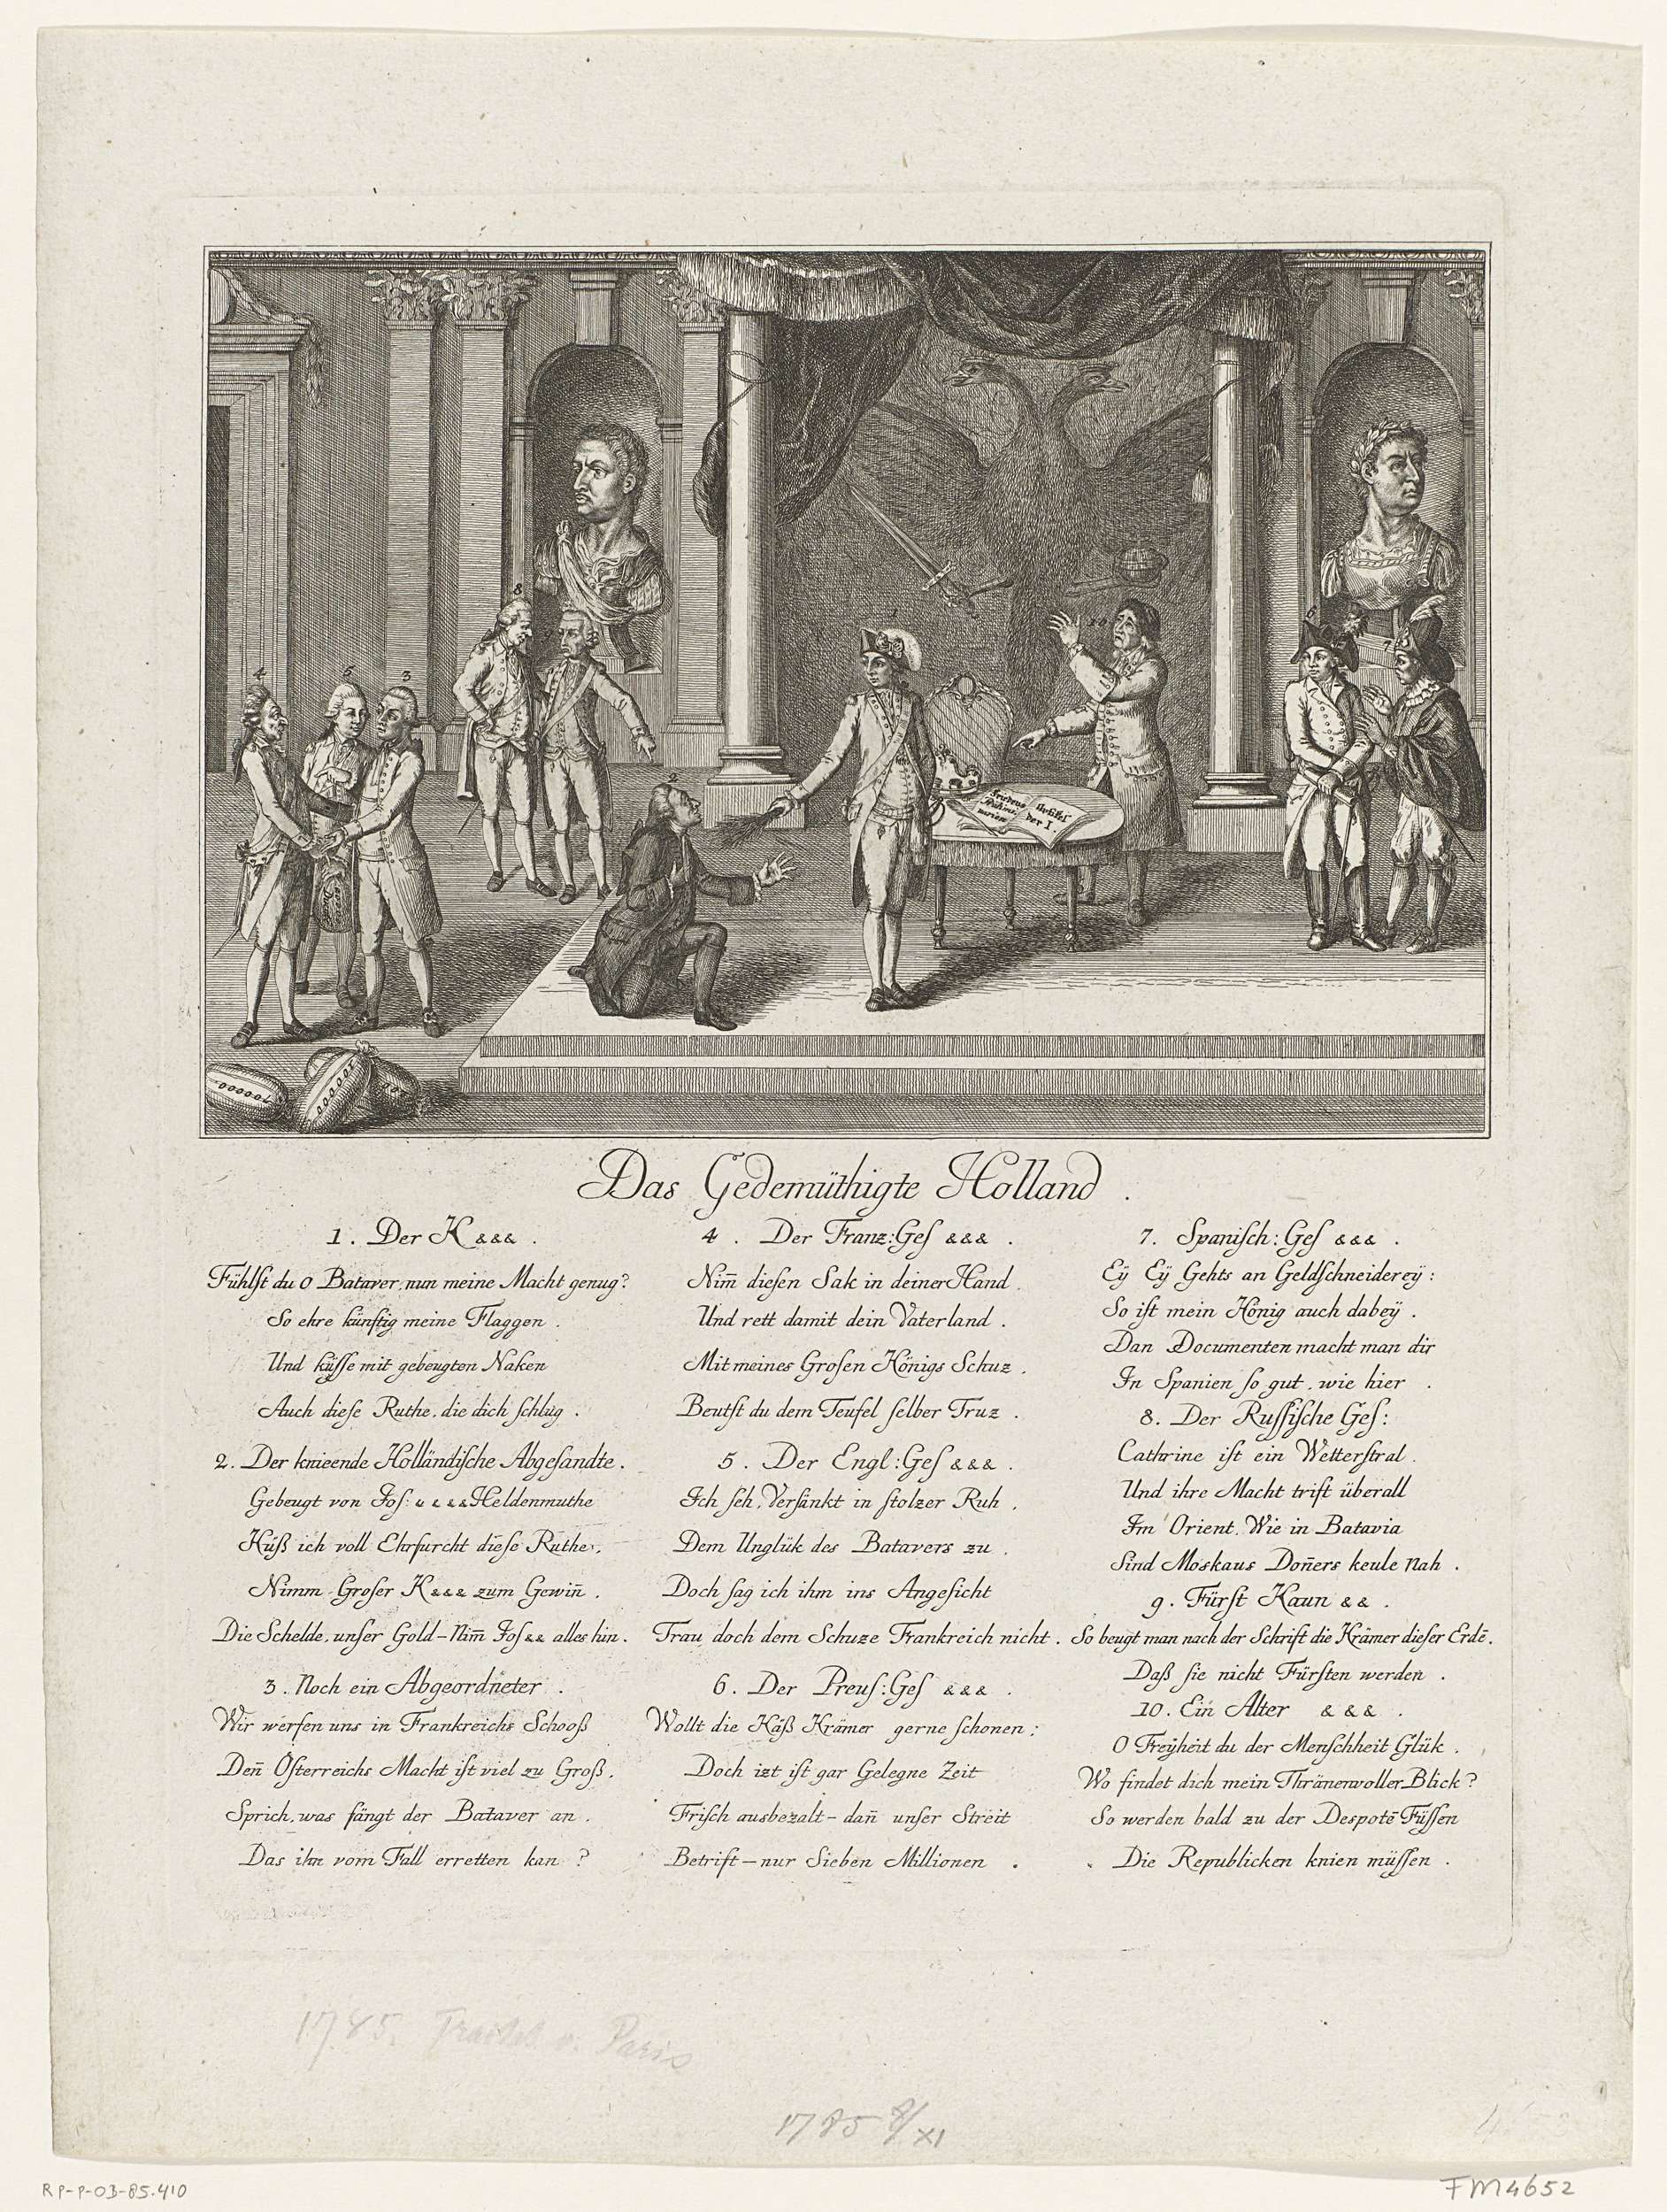 4
5
3
8
9
2
1
10
6
7
Friedens
Prälimi
narien
Artikel
der I.
700000.
100000
Das Gedemüthigte Holland.
1. Der K &&&.
Fühlſt du O Bataver, nun meine Macht genug?
So ehre künftig meine Flaggen.
Und küſſe mit gebeugten Naken
Auch dieſe Ruthe, die dich ſchlug.
2. Der knieende Holländiſche Abgeſandte.
Gebeugt von Joſ: &&& Heldenmuthe
Küß ich voll Ehrfurcht dieſe Ruthe,
Nimm Groſer K&&& zum Gewin̄.
Die Schelde, unſer Gold – Nim̄ Joſ&& alles hin.
3. Noch ein Abgeordneter.
Wir werfen uns in Frankreichs Schooß
Den̄ Öſterreichs Macht iſt viel zu Groß.
Sprich, was fängt der Bataver an.
Das ihn vom Fall erretten kan?
4. Der Franz: Geſ &&&.
Nim̄ dieſen Sak in deiner Hand.
Und rett damit dein Vaterland.
Mit meines Groſen Königs Schuz.
Beutſt du dem Teufel ſelber Truz.
5. Der Engl: Geſ &&&.
Ich ſeh, Verſänkt in ſtolzer Ruh.
Dem Unglük des Batavers zu.
Doch ſag ich ihm ins Angeſicht
Trau doch dem Schuze Frankreich nicht.
6. Der Preuſ: Geſ &&&.
Wollt die Käß Krämer gerne ſchonen;
Doch izt iſt gar Gelegne Zeit
Friſch ausbezalt – dan̄ unſer Streit
Betrift – nur Sieben Millionen.
7. Spaniſch: Geſ &&&.
Eÿ Eÿ Gehts an Geldſchneidereÿ:
So iſt mein König auch dabeÿ.
Dan Documenten macht man dir
In Spanien ſo gut, wie hier.
8. Der Ruſſiſche Geſ:
Cathrine iſt ein Wetterſtral.
Und ihre Macht trift überall
Im Orient, Wie in Batavia
Sind Moskaus Don̄ers keule Nah.
9. Fürſt Kaun &&.
So beugt man nach der Schrift die Krämer dieſer Erdē.
Daß ſie nicht Fürſten werden.
10. Ein Alter &&&.
O Freÿheit du der Menſchheit Glük.
Wo findet dich mein Thränenvoller Blick?
So werden bald zu der Despotē Füſſen
Die Republicken knien müſſen.
1785. Tractat v. Paris
1785 8/XI
RP-P-OB-85.410
FM4652